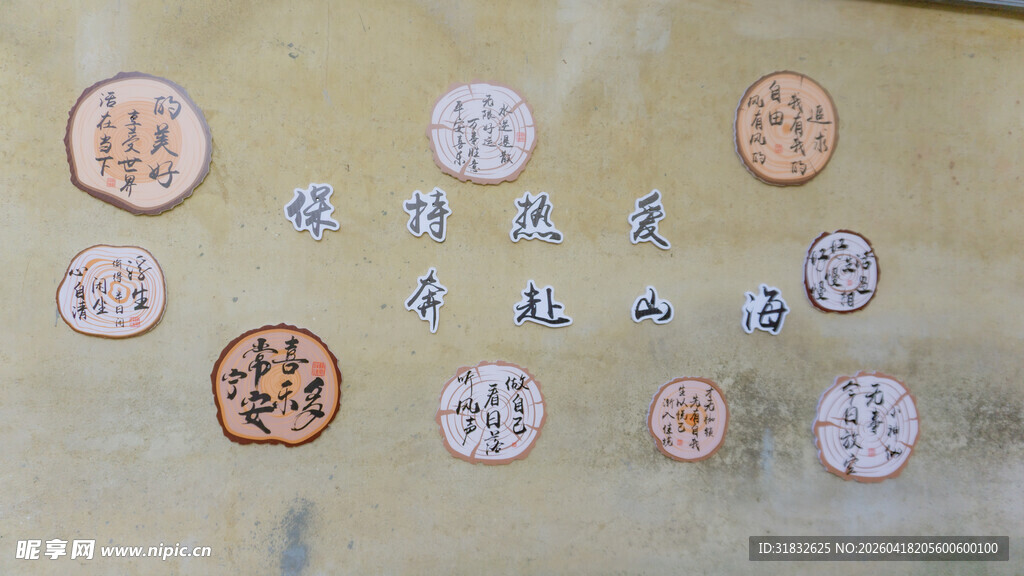 的美好
享受世界
活在当下
水逆退散
万事胜意
平安喜乐
追求
我有我的
自由
风有风的
保持热爱
奔赴山海
浮生
偷得半日闲
闲坐
心自清
喜乐多
常安
宁
做自己
看日落
听风声
渐入佳境
小神仙
无事
今日放空
昵享网 www.nipic.cn
ID:31832625 NO:20260418205600600100